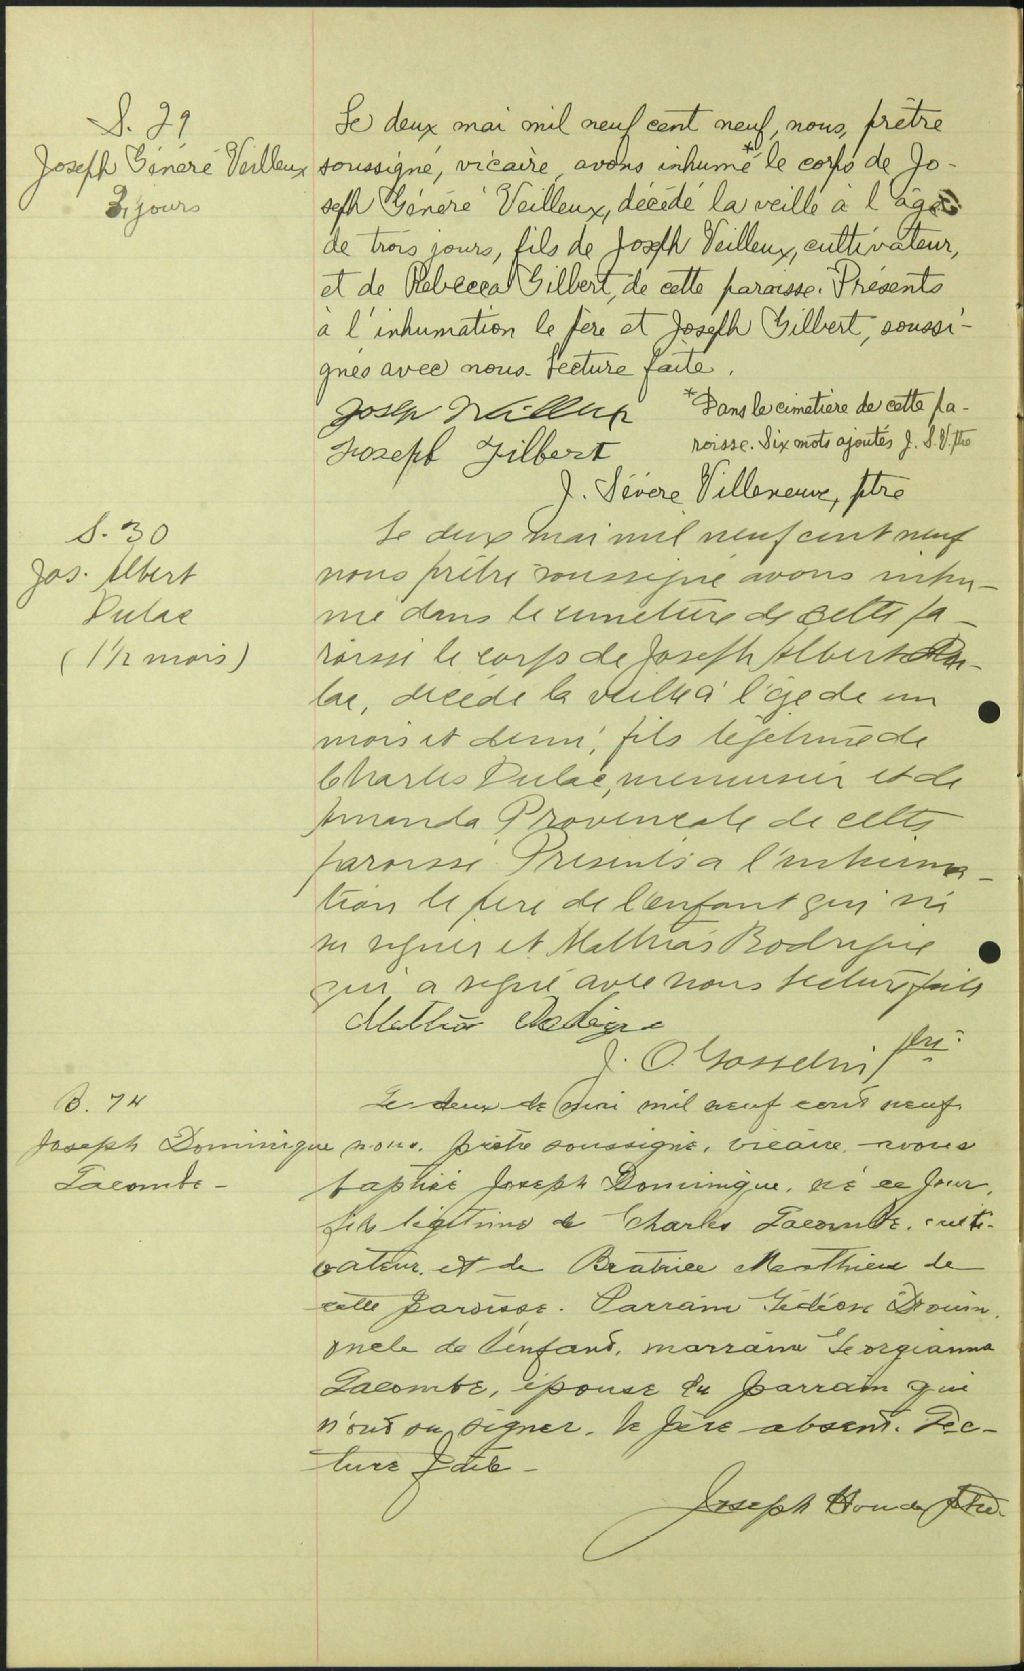 S. 29
Joseph Généré Veilleux
3 jours
Le deux mai mil neuf cent neuf, nous, prêtre
soussigné, vicaire, avons inhumé* le corps de Jo-
seph Généré Veilleux, décédé la veille à l'âge
de trois jours, fils de Joseph Veilleux, cultivateur,
et de Rébecca Gilbert, de cette paroisse. Présents
à l'inhumation le père et Joseph Gilbert, soussi-
gnés avec nous. Lecture faite.
Josep Veilleux
Joseph Gilbert
*Dans le cimetière de cette pa-
roisse. Six mots ajoutés J. S. V. ptre
J. Sévère Villeneuve, ptre
S. 30
Jos. Albert
Dulac
(1 1/2 mois)
Le deux mai mil neuf cent neuf
nous prêtre soussigné avons inhu-
mé dans le cimetière de cette pa-
roisse le corps de Joseph Albert Du-
lac, décédé la veille à l'âge de un
mois et demi, fils légitime de
Charles Dulac, menuisier et de
Amanda Provencale de cette
paroisse. Présents a l'inhuma-
tion le père de l'enfant qui n'a
su signer et Mathias Rodrigue
qui a signé avec nous lecture faite
Mathias Rodrigue
J. O. Gosselin ptre.
B. 74
Joseph Dominique
Lacombe -
Le deux de mai mil neuf cent neuf
nous, prêtre soussigné, vicaire avons
baptisé Joseph Dominique, né ce jour,
fils légitime de Charles Lacombe, culti-
vateur, et de Béatrice Matthieu de
cette paroisse. Parrain Gédéon Drouin,
oncle de l'enfant, marraine Georgianna
Lacombe, épouse du parrain qui
n'ont su signer, le père absent. Lec-
ture faite -
Joseph Houde Ptre.